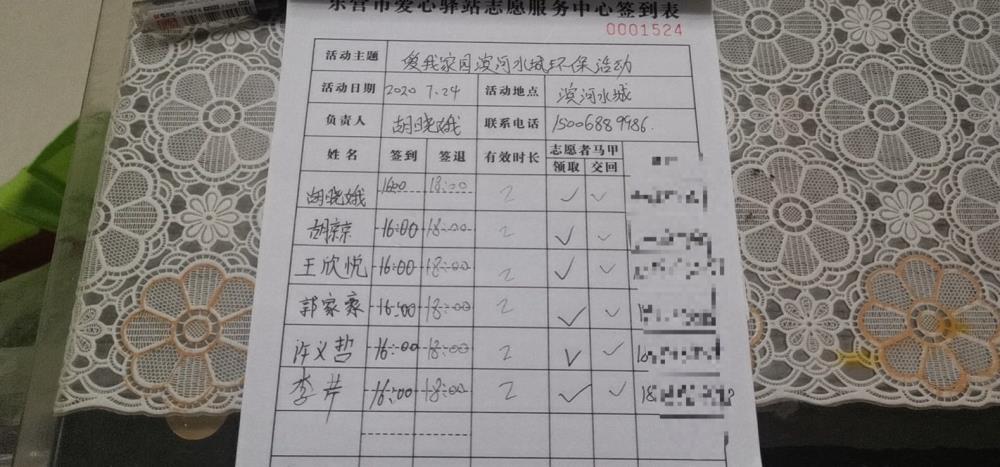 东营市爱心驿站志愿服务中心签到表
0001524
活动主题 爱我家园滨河水城环保活动
活动日期 2020 7.24 活动地点 滨河水城
负责人 胡晓娥 联系电话 15006889986.
姓名 签到 签退 有效时长 志愿者马甲
领取 交回
胡晓娥 16:00 18:00 2 ✓ ✓
胡京京 16:00 18:00 2 ✓ ✓
王欣悦 16:00 18:00 2 ✓ ✓
郭家豪 16:00 18:00 2 ✓ ✓
许义哲 16:00 18:00 2 ✓ ✓
李芹 16:00 18:00 2 ✓ ✓ 18